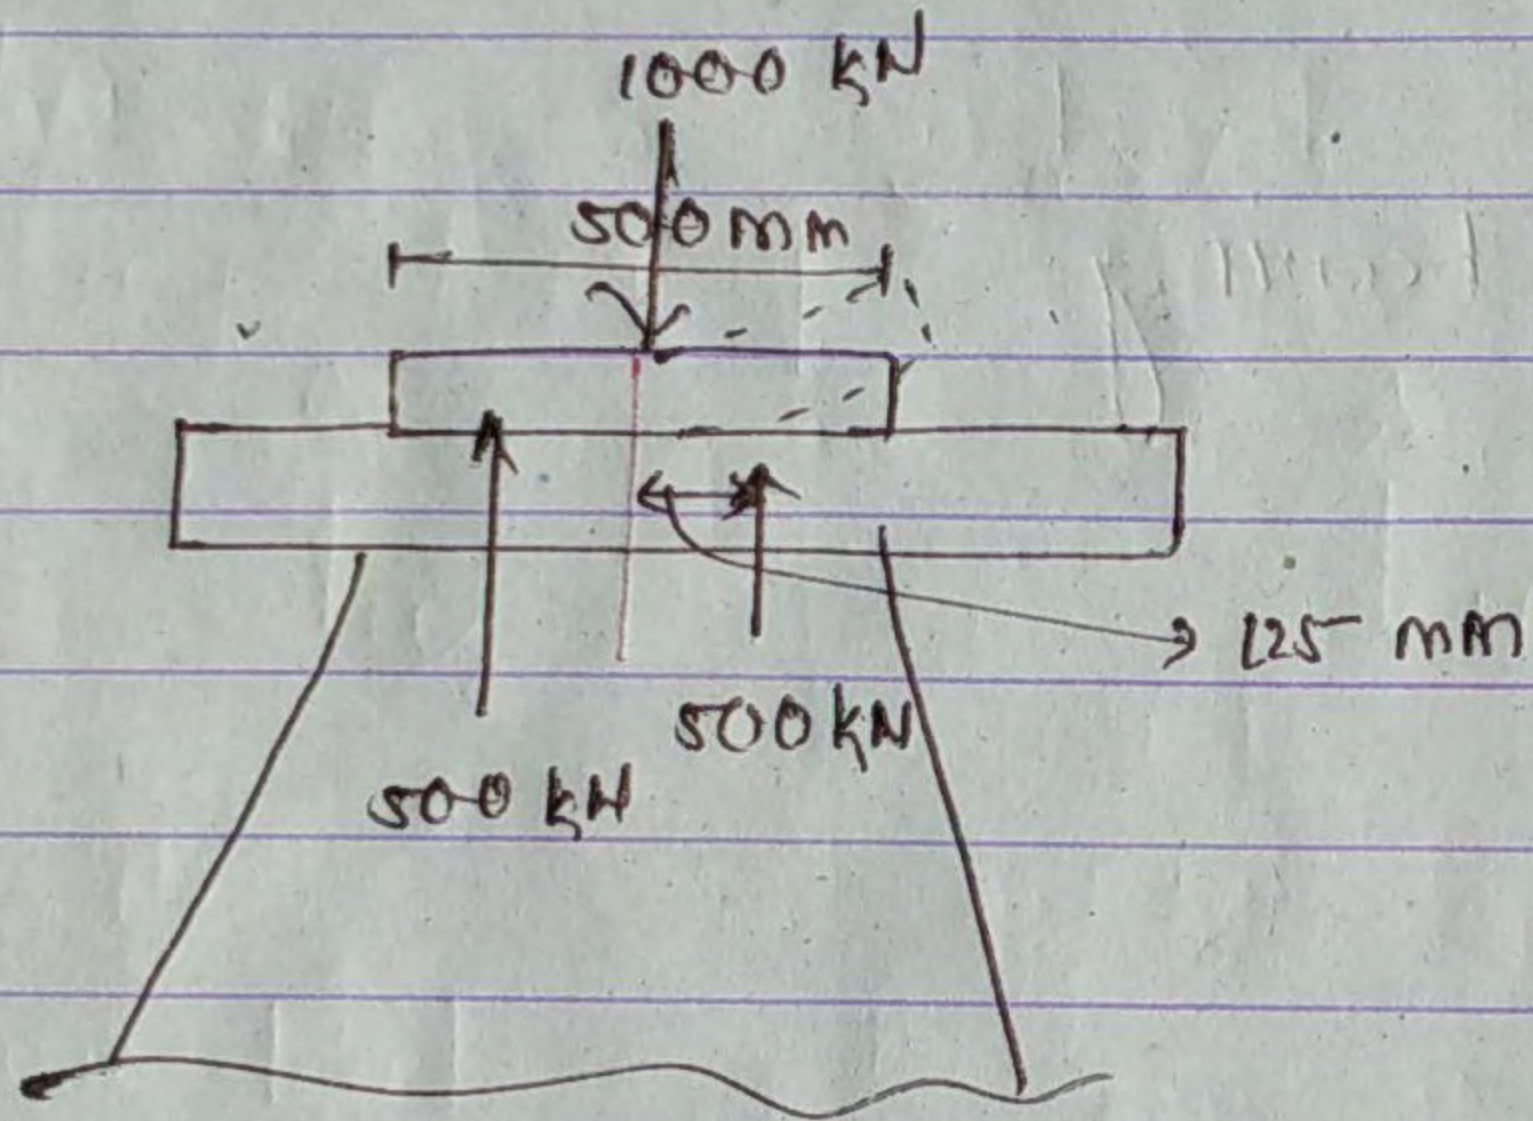 1000 kN
500 mm
125 mm
500 kN
500 kN